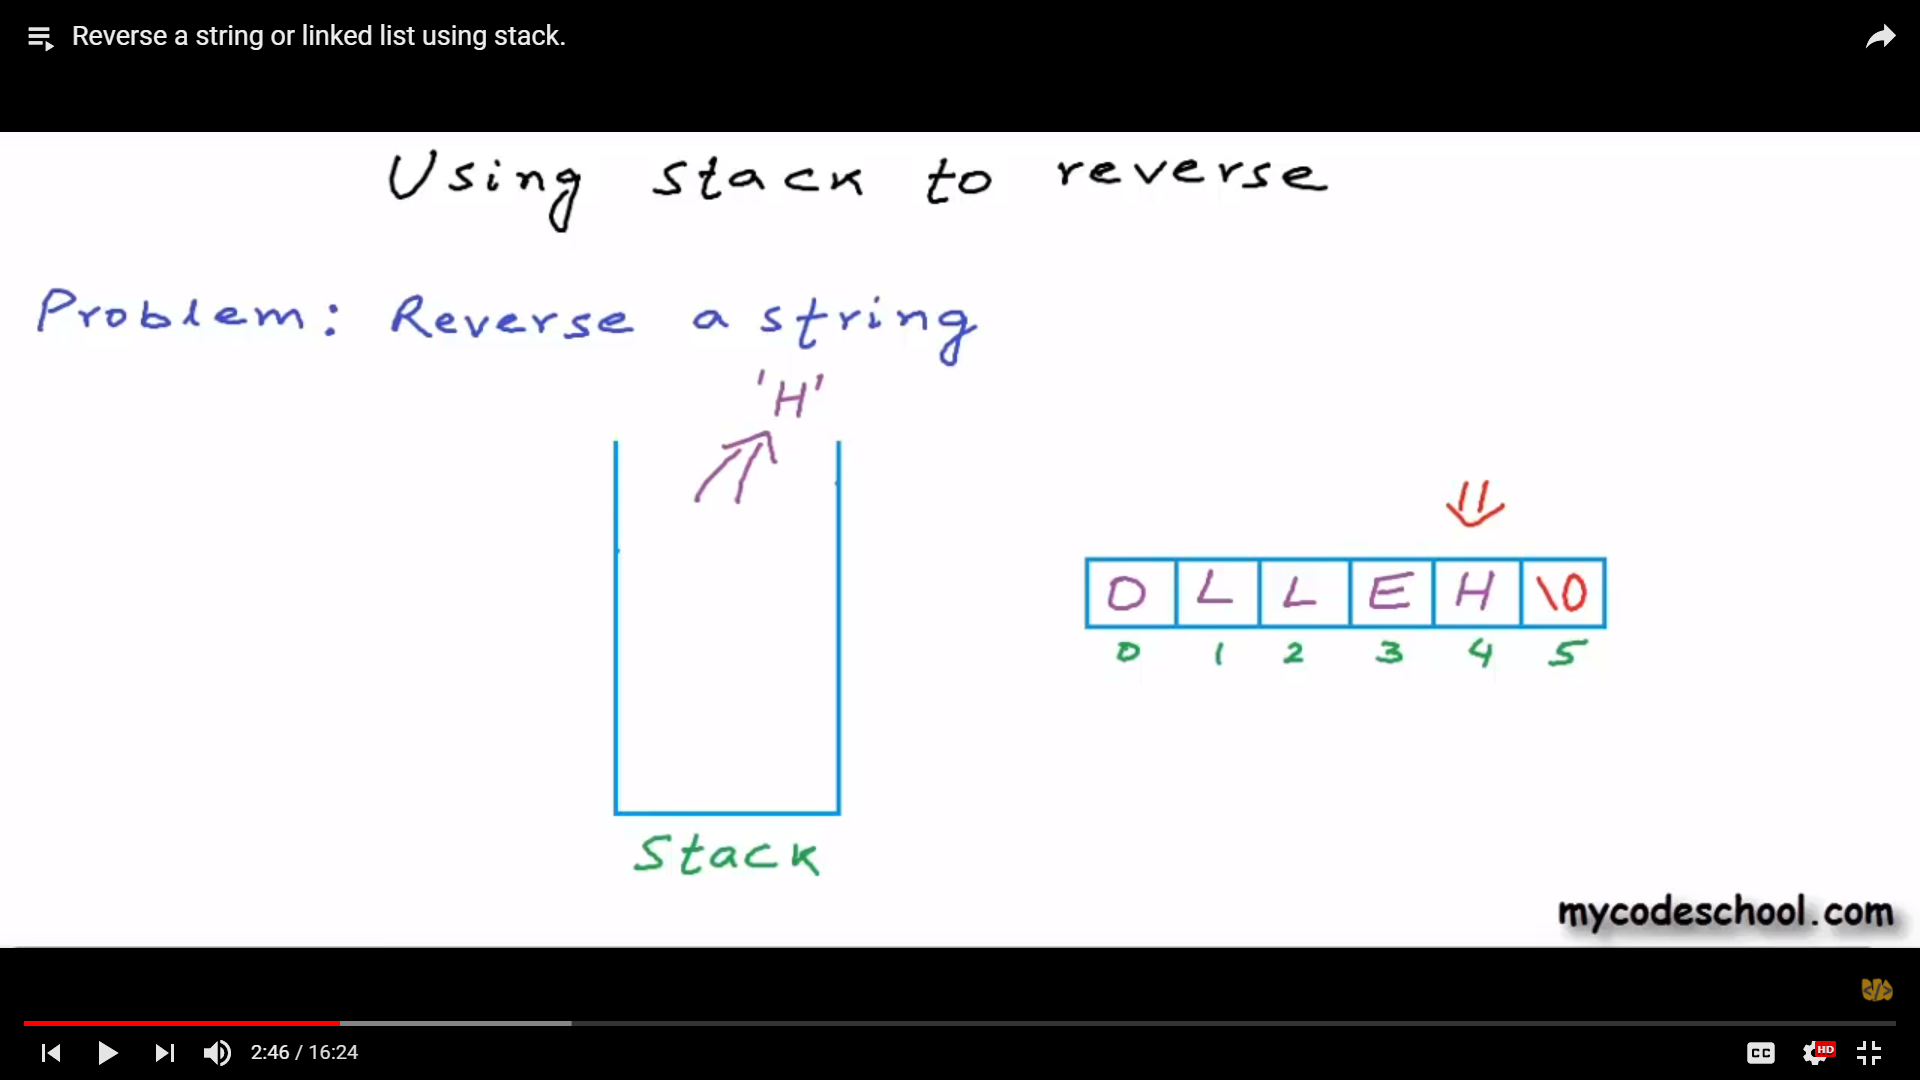 Reverse a string or linked list using stack.
Using stack to reverse
Problem: Reverse a string
'H'
O L L E H \0
0 1 2 3 4 5
Stack
mycodeschool.com
</>
2:46 / 16:24
CC
HD